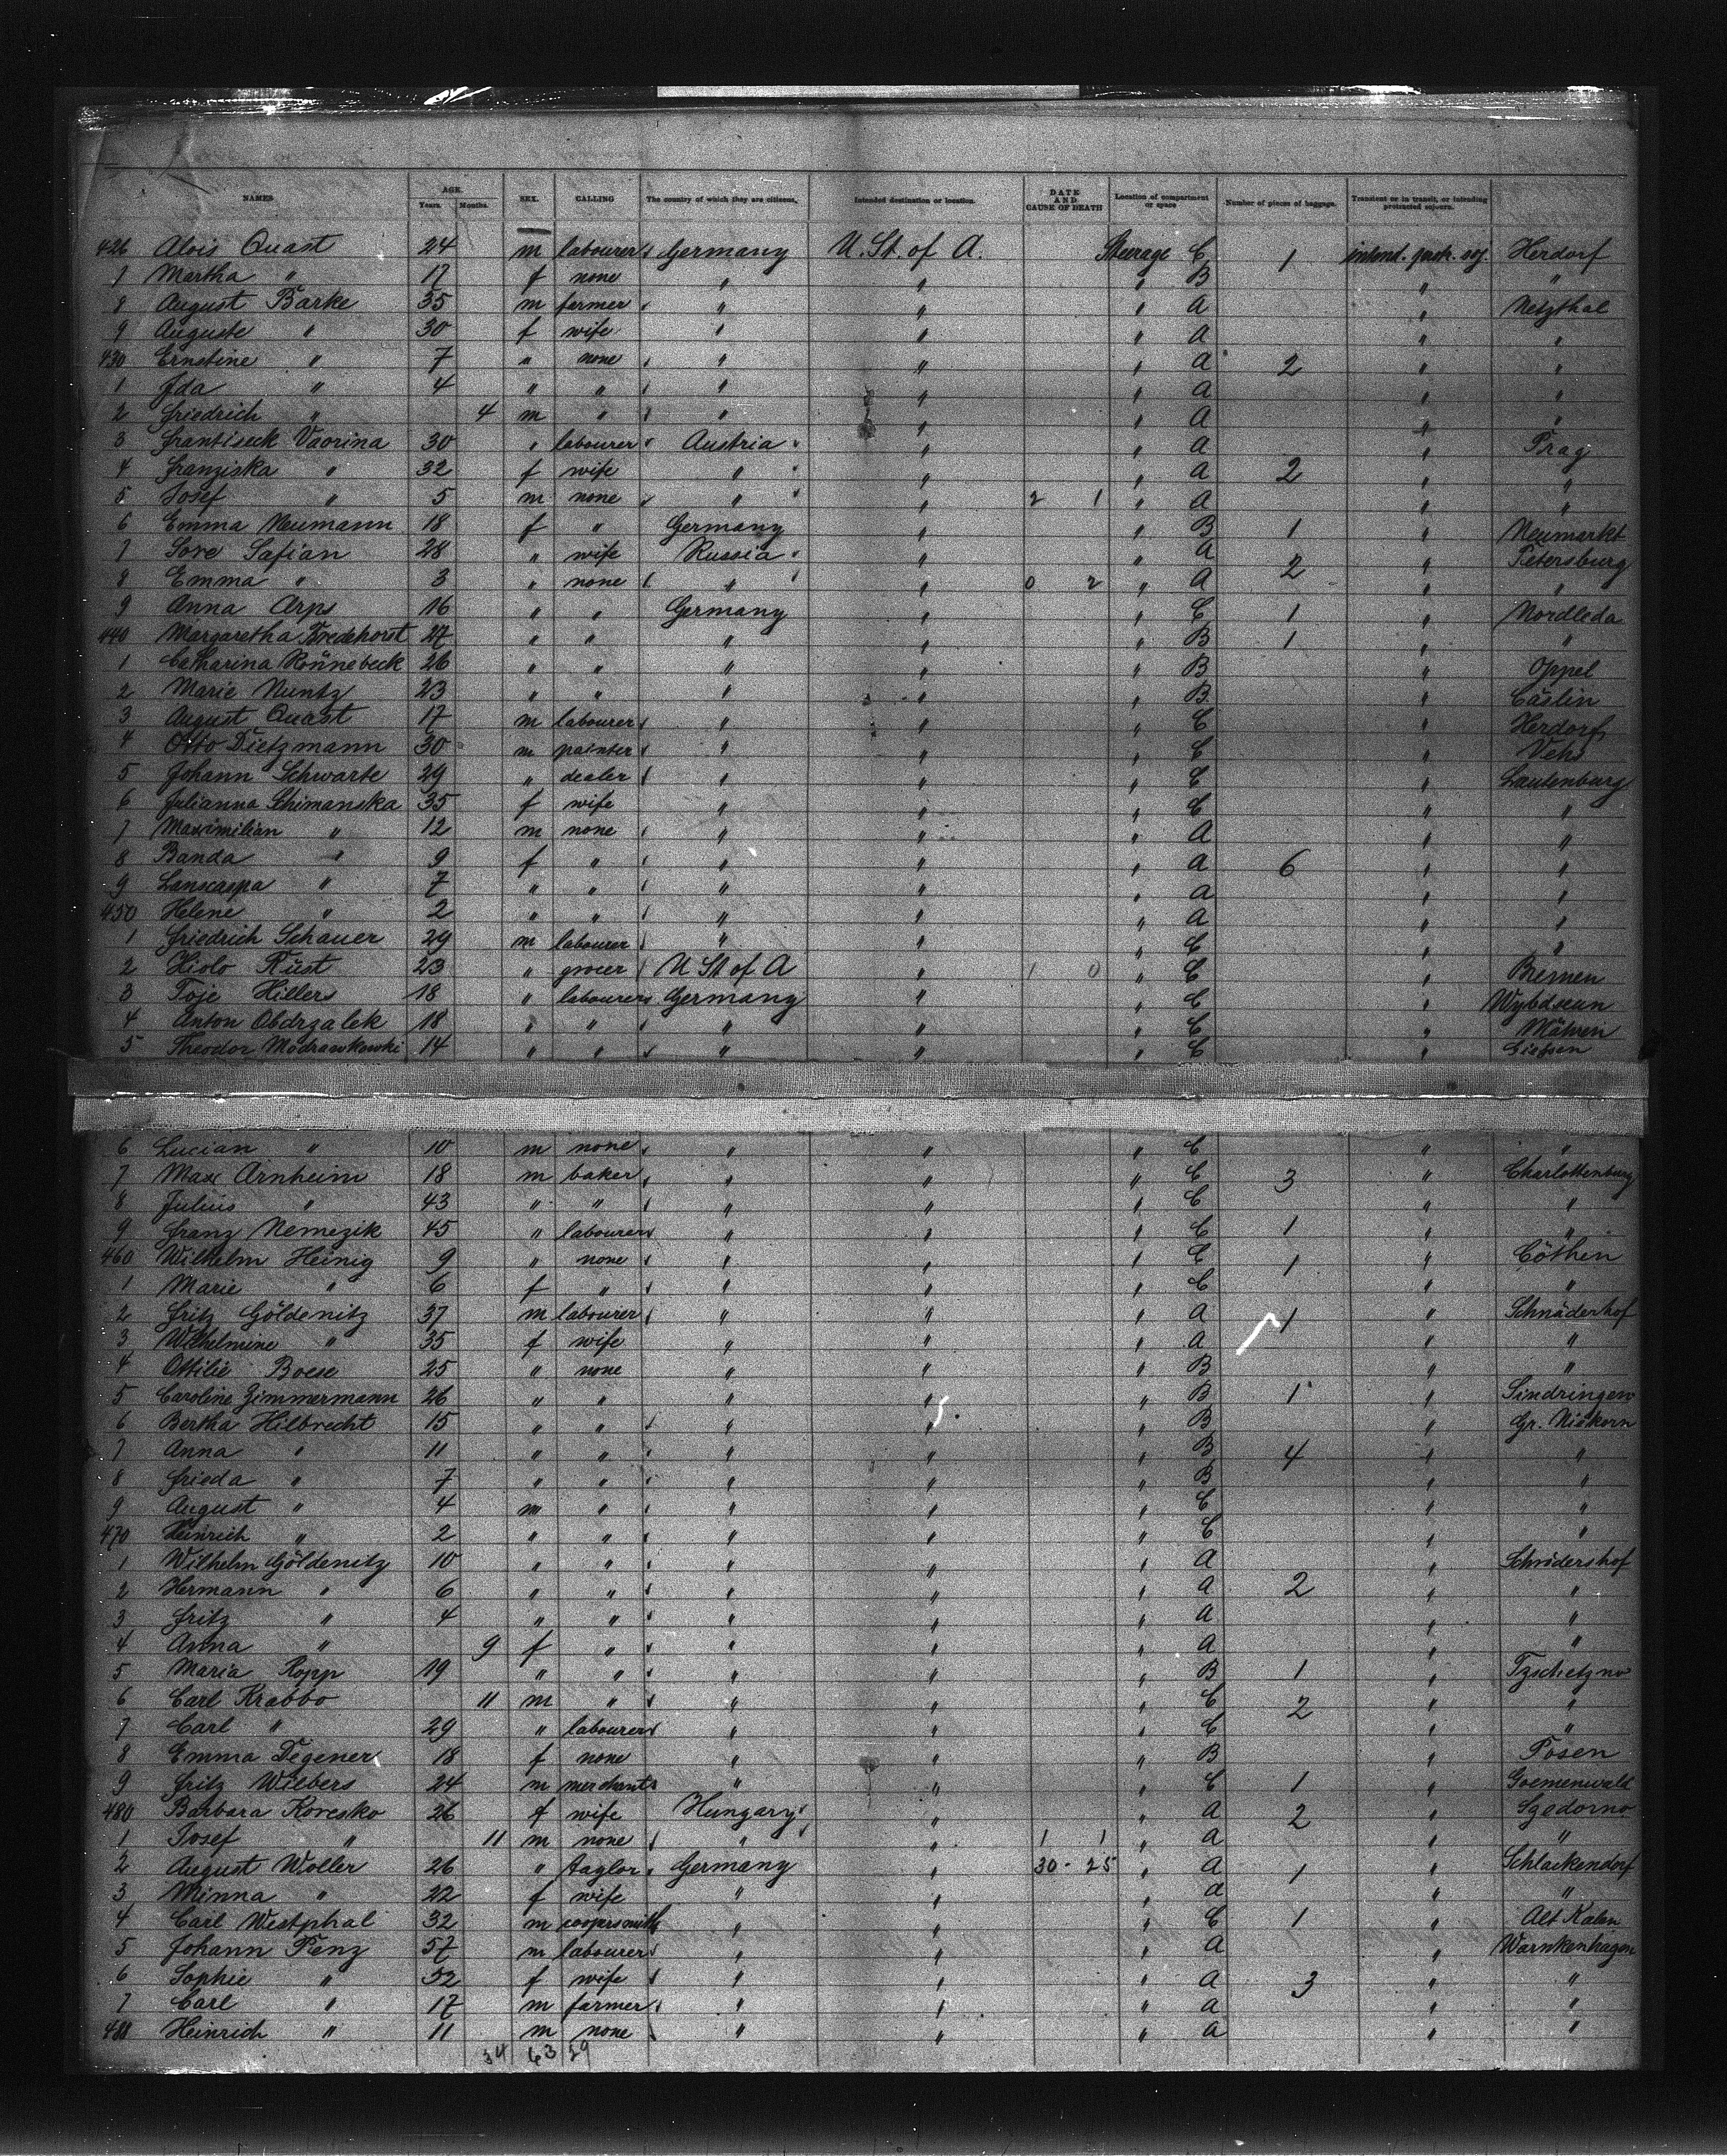 NAMES AGE. Years. Months. SEX. CALLING The country of which they are citizens. Intended destination or location. DATE AND CAUSE OF DEATH Location of compartment or space Number of pieces of baggage. Transient or in transit, or intending protracted sojourn.
426 Alois Quast 24 m labourer Germany U. St. of A. Steerage C 1 intend. protr. soj. Herdorf
7 Martha " 17 f none " " " B " "
8 August Barke 35 m farmer " " " A " Netzthal
9 Auguste " 30 f wife " " " A " "
430 Ernstine " 7 " none " " " A 2 " "
1 Ida " 4 " " " " " A " "
2 Friedrich " 4 m " " " " A " "
3 Frantiseck Vaorina 30 " labourer Austria " " A " Prag
4 Franziska " 32 f wife " " " A 2 " "
5 Josef " 5 m none " " 2 1 " A " "
6 Emma Neumann 18 f " Germany " " B 1 " Neumarkt
7 Sore Safian 28 " wife Russia " " A " Petersburg
8 Emma " 3 " none " " 0 2 " A 2 " "
9 Anna Arps 16 " " Germany " " C 1 " Nordleda
440 Margaretha Fredehorst 27 " " " " " B 1 " "
1 Catharina Rönnebeck 26 " " " " " B " Oppel
2 Marie Nuntz 23 " " " " " B " Cöslin
3 August Quast 17 m labourer " " " C " Herdorf
4 Otto Dietzmann 30 m painter " " " C " Vehs
5 Johann Schwarte 29 " dealer " " " C " Lautenburg
6 Julianna Schimanska 35 f wife " " " C " "
7 Maximilian " 12 m none " " " A " "
8 Banda " 9 f " " " " A 6 " "
9 " 7 " " " " " A " "
450 Helene " 2 " " " " " A " "
1 Friedrich Schauer 29 m labourer " " " C " "
2 Rüst 23 " grocer U St of A " 1 0 " C " Bremen
3 Toje Hillers 18 " labourer Germany " " C "
4 Anton Obdrzalek 18 " " " " " C " Mähren
5 Theodor Modrawkowski 14 " " " " " C "
6 Lucian " 10 m none " " " C " "
7 Max Arnheim 18 m baker " " " C 3 " Charlottenburg
8 Julius " 43 " " " " " C " "
9 Franz Nemezik 45 " labourer " " " C 1 " "
460 Wilhelm Heinig 9 " none " " " C 1 " Cöthen
1 Marie " 6 f " " " " C " "
2 Fritz Göldenitz 37 m labourer " " " A 1 " Schnäderhof
3 Wilhelmine " 35 f wife " " " A " "
4 Ottilie Boese 25 " none " " " B " "
5 Caroline Zimmermann 26 " " " " " B 1 " Sindringen
6 Bertha Hilbrecht 15 " " " " " B " Gr. Niekorn
7 Anna " 11 " " " " " B 4 " "
8 Frieda " 7 " " " " " B " "
9 August " 4 m " " " " C " "
470 Heinrich " 2 " " " " " C " "
1 Wilhelm Göldenitz 10 " " " " " A " Schrödershof
2 Hermann " 6 " " " " " A 2 " "
3 Fritz " 4 " " " " " A " "
4 Anna " 9 f " " " " A " "
5 Maria Ropp 19 " " " " " B 1 " Tzschetzno
6 Carl Krabbo 11 m " " " " C 2 " "
7 Carl " 29 " labourer " " " C " "
8 Emma Degener 18 f none " " " B " Posen
9 Fritz Wilbers 24 m merchant " " " C 1 " Goemenwald
480 Barbara Koresko 26 f wife Hungary " " A 2 " Sgedorno
1 Josef " 11 m none " " 1 1 " A " "
2 August Woller 26 " taylor Germany " 30 - 25 " A 1 " Schlackendorf
3 Minna " 22 f wife " " " A " "
4 Carl Westphal 32 m coopersmith " " " C 1 " Alt Kalen
5 Johann Penz 57 m labourer " " " A " Warnkenhagen
6 Sophie " 52 f wife " " " A 3 " "
7 Carl " 17 m farmer " " " A " "
488 Heinrich " 11 m none " " " A " "
34 63 29